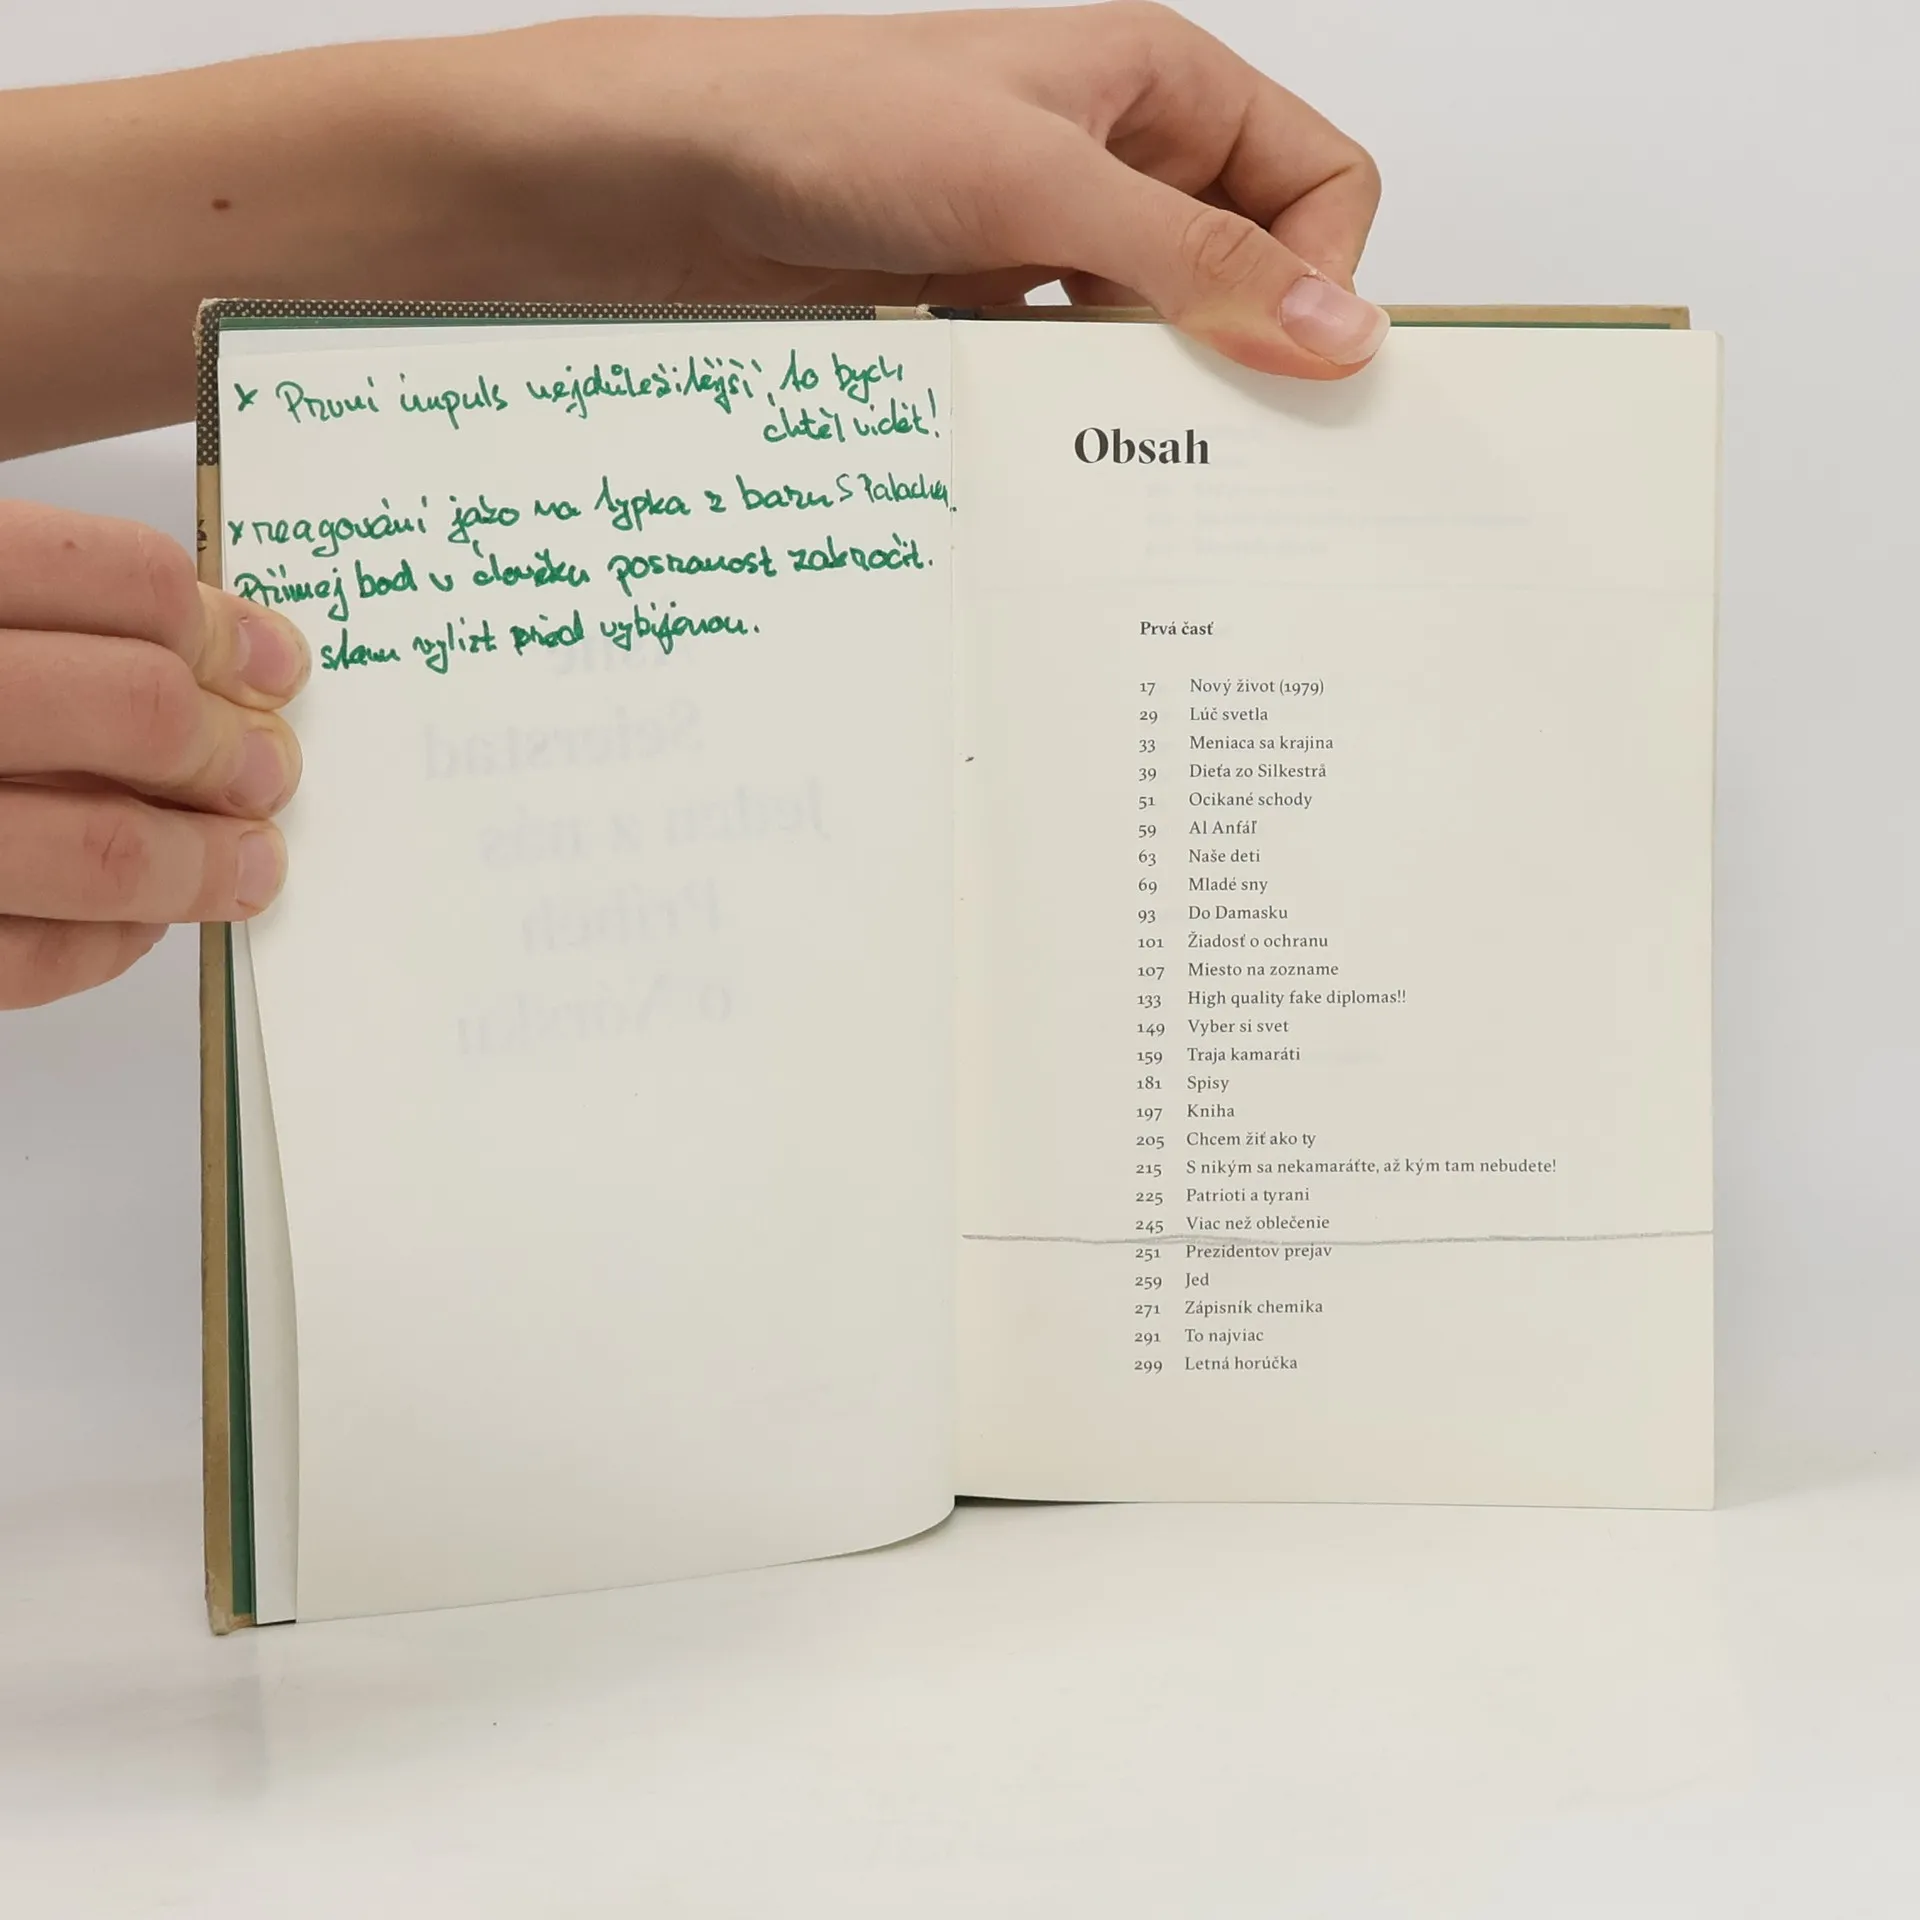 × První impuls nejdůležitější, to bych
chtěl vidět!
× reagování jako na typka z baru s Palachem.
Přímej bod v člověku posranost zakročit.
slanu vylízt před vybíjenou.
Åsne
Seierstad
Jeden z nás
Príbeh
o Nórsku
Obsah
Prvá časť
17 Nový život (1979)
29 Lúč svetla
33 Meniaca sa krajina
39 Dieťa zo Silkestrå
51 Ocikané schody
59 Al Anfáľ
63 Naše deti
69 Mladé sny
93 Do Damasku
101 Žiadosť o ochranu
107 Miesto na zozname
133 High quality fake diplomas!!
149 Vyber si svet
159 Traja kamaráti
181 Spisy
197 Kniha
205 Chcem žiť ako ty
215 S nikým sa nekamaráťte, až kým tam nebudete!
225 Patrioti a tyrani
245 Viac než oblečenie
251 Prezidentov prejav
259 Jed
271 Zápisník chemika
291 To najviac
299 Letná horúčka